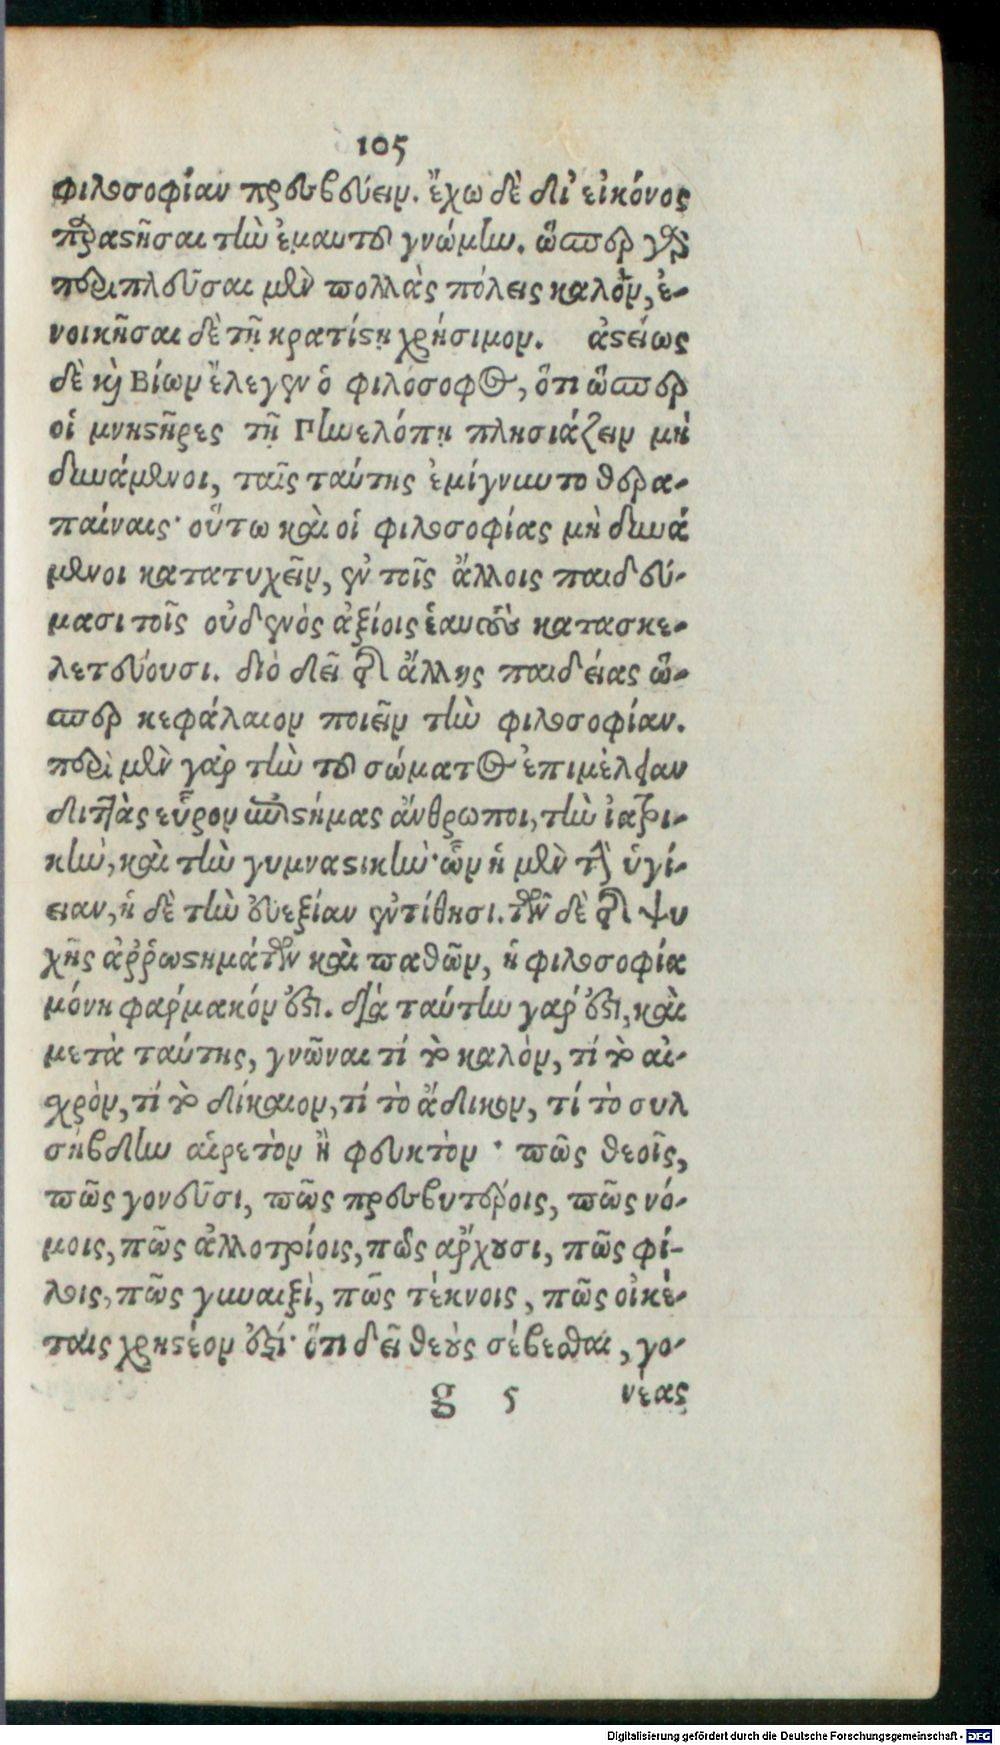 105
φιλοσοφίαν πρεσβεύειν. ἔχω δὲ δι' εἰκόνος
παραστῆσαι τὴν ἐμαυτοῦ γνώμην. ὥσπερ γὰρ
περιπλεῦσαι μὲν πολλὰς πόλεις καλὸν, ἐ-
νοικῆσαι δὲ τῇ κρατίστῃ χρήσιμον. ἀστείως
δὲ καὶ Βίων ἔλεγεν ὁ φιλόσοφος, ὅτι ὥσπερ
οἱ μνηστῆρες τῇ Πηνελόπῃ πλησιάζειν μὴ
δυνάμενοι, ταῖς ταύτης ἐμίγνυντο θερα-
παίναις· οὕτω καὶ οἱ φιλοσοφίας μὴ δυνά
μενοι κατατυχεῖν, ἐν τοῖς ἄλλοις παιδεύ-
μασι τοῖς οὐδενὸς ἀξίοις ἑαυτοὺς κατασκε-
λετεύουσι. διὸ δεῖ τῆς ἄλλης παιδείας ὥ-
σπερ κεφάλαιον ποιεῖν τὴν φιλοσοφίαν.
περὶ μὲν γὰρ τὴν τοῦ σώματος ἐπιμέλειαν
διττὰς εὗρον ἐπιστήμας ἄνθρωποι, τὴν ἰατρι-
κὴν, καὶ τὴν γυμναστικὴν· ὧν ἡ μὲν τὴν ὑγί-
ειαν, ἡ δὲ τὴν εὐεξίαν ἐντίθησι. τῶν δὲ τῆς ψυ
χῆς ἀῤῥωστημάτων καὶ παθῶν, ἡ φιλοσοφία
μόνη φαρμακόν ἐστι. διὰ ταύτην γαρ ἐστι, καὶ
μετὰ ταύτης, γνῶναι τί τὸ καλὸν, τί τὸ αἰ-
σχρὸν, τί τὸ δίκαιον, τί τὸ ἄδικον, τί τὸ συλ
σήβδην αἱρετὸν ἢ φευκτὸν· πῶς θεοῖς,
πῶς γονεῦσι, πῶς πρεσβυτέροις, πῶς νό-
μοις, πῶς ἀλλοτρίοις, πῶς ἄρχουσι, πῶς φί-
λοις, πῶς γυναιξὶ, πῶς τέκνοις, πῶς οἰκέ-
ταις χρηστέον ἐστί· ὅτι δεῖ θεοὺς σέβεσθαι, γο-
g 5 νέας
Digitalisierung gefördert durch die Deutsche Forschungsgemeinschaft - DFG